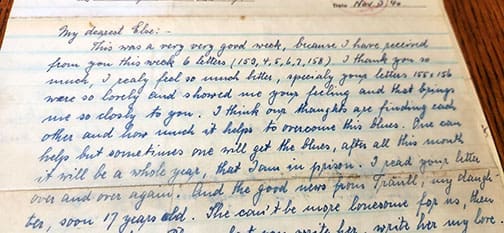 Date Nov. 3/40
My dearest Else:-
This was a very very good week, because I have received
from you this week 6 letters (153,4,5,6,7,158) I thank you so
much, I realy feel so much better, specialy your letters 155+156
were so lovely and showed me your feeling and that brings
me so closly to you. I think our thaughts are finding each
other and how much it helps to overcome this blues. One can
helps but sometimes one will get the blues, after all this month
it will be a whole year, that I am in prison. I read your letter
over and over again. And the good news from Trautl, my daugh-
ter, soon 17 years old. She can't be more lonesome for us, then
write her, write her my love.